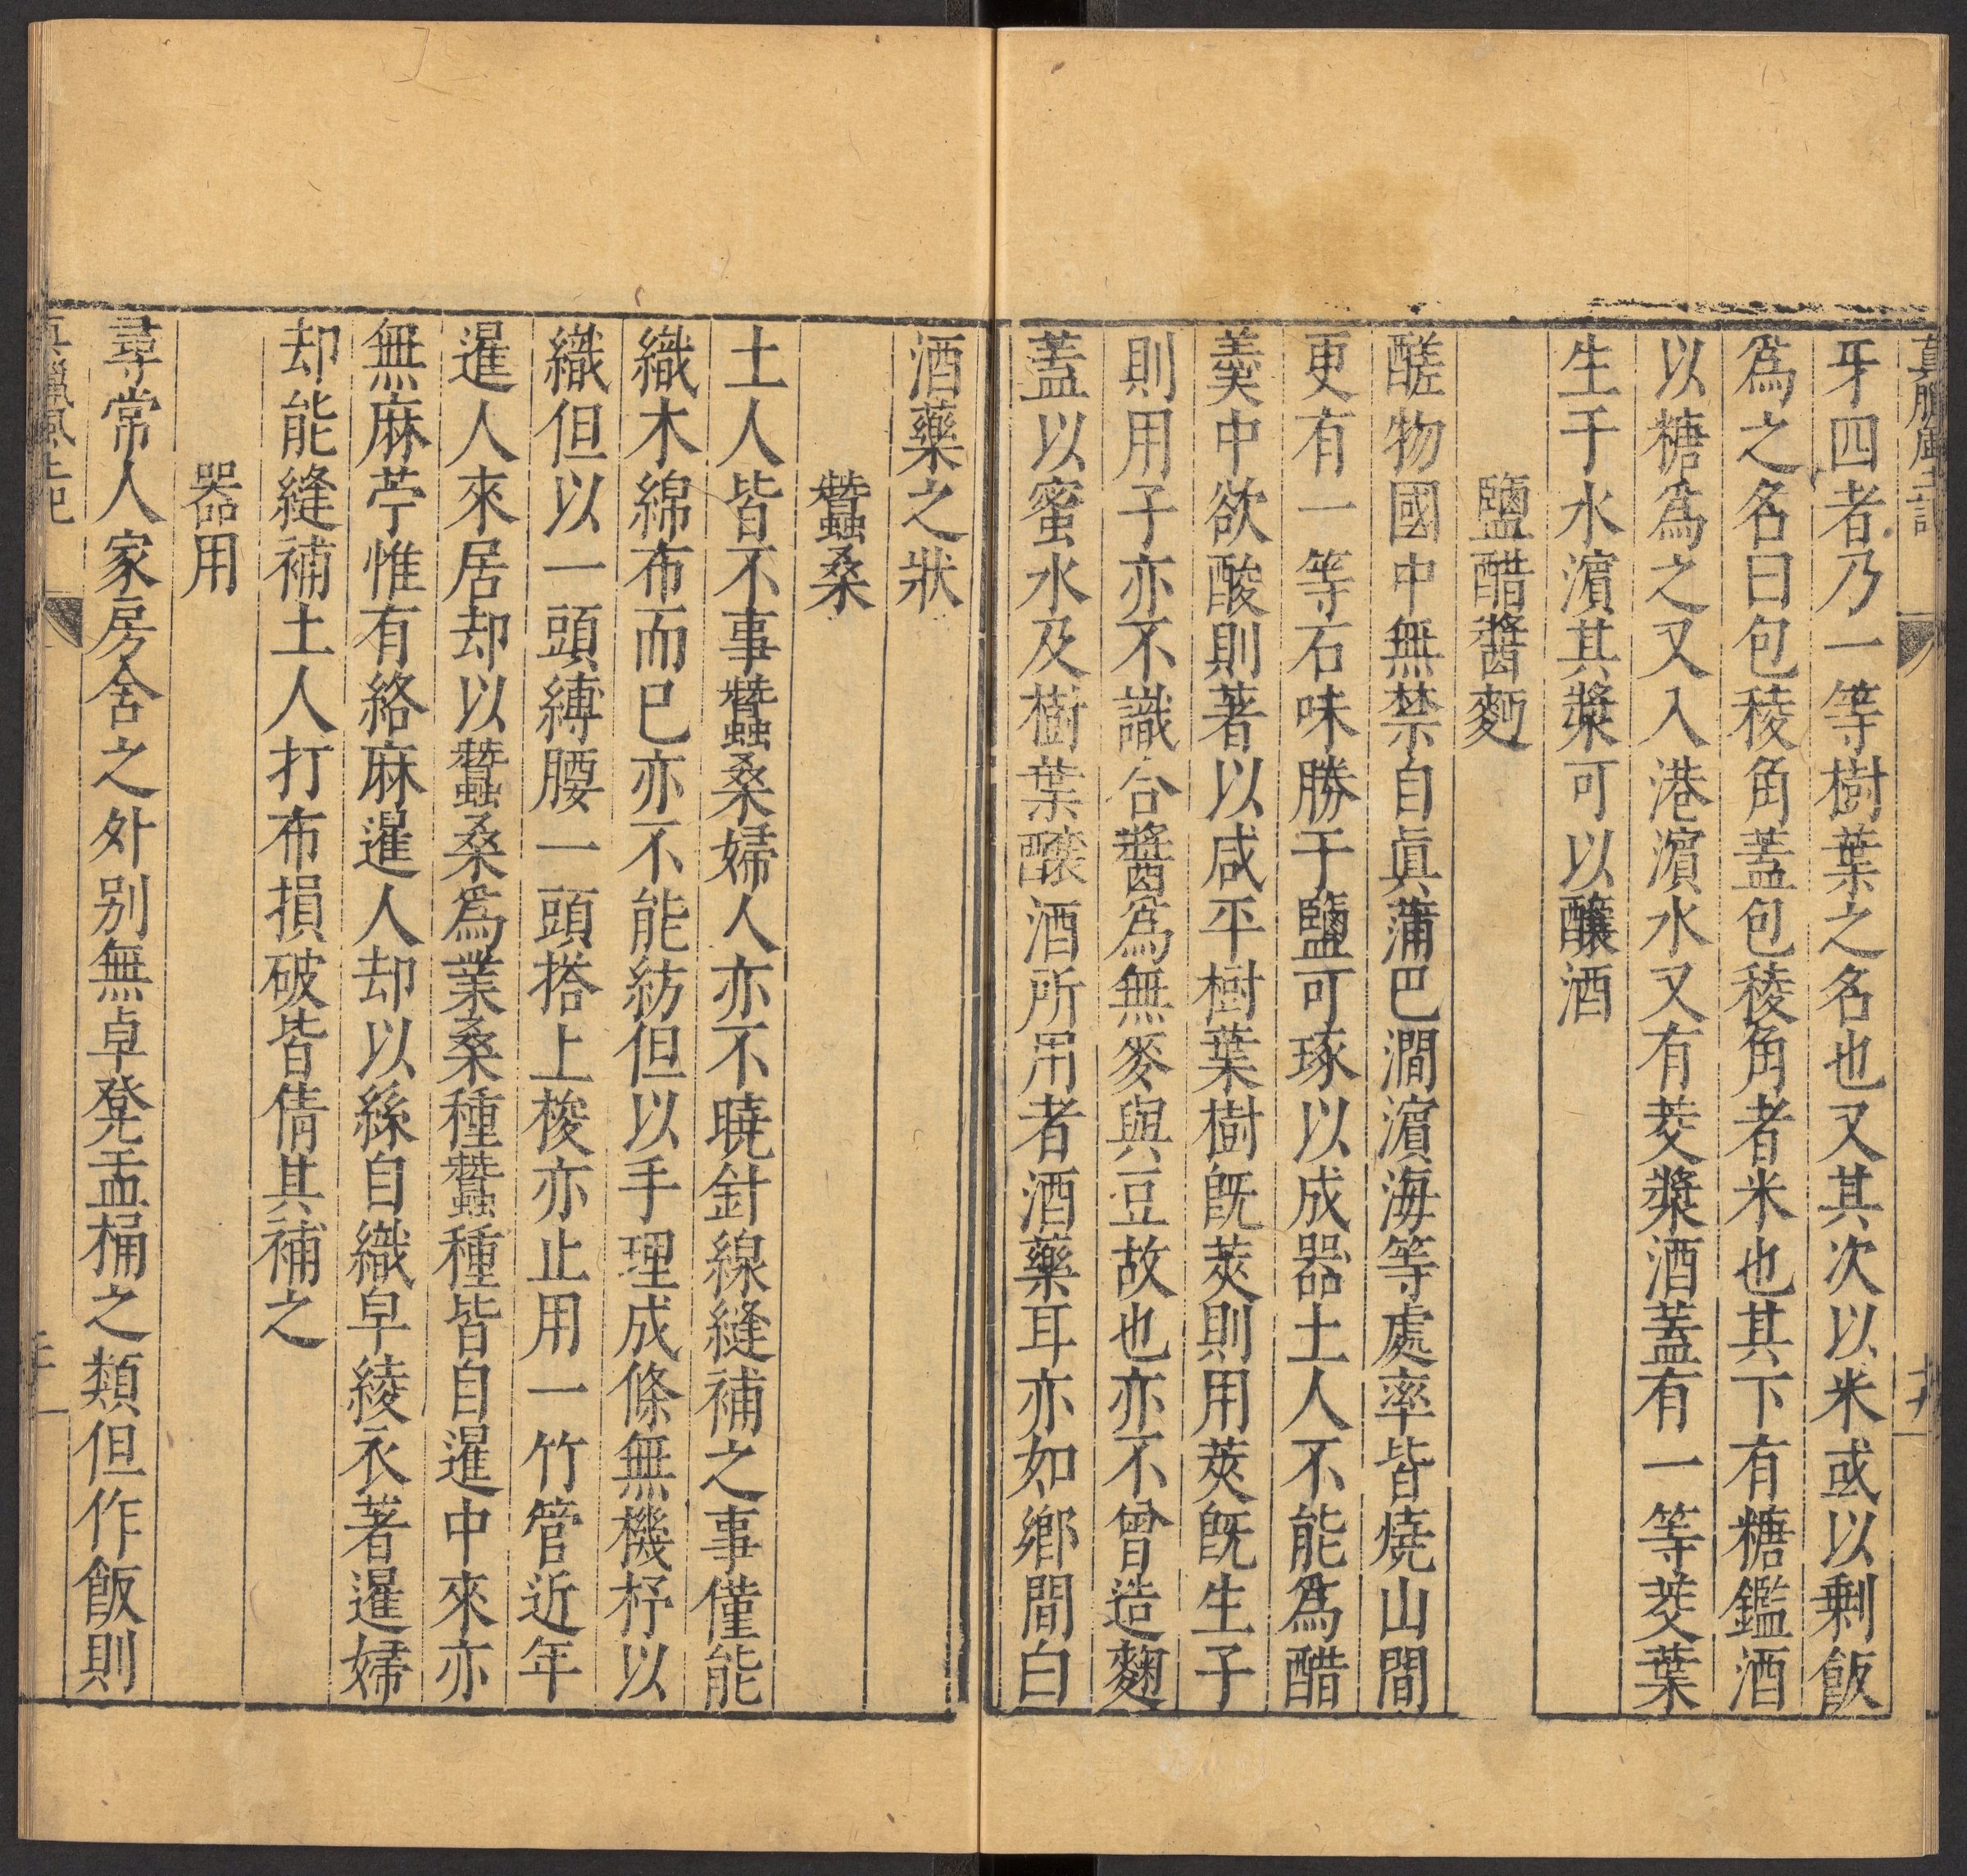 真臘風土記
牙四者乃一等樹葉之名也又其次以米或以剩飯
爲之名曰包稜角蓋包稜角者米也其下有糖鑑酒
以糖爲之又入港濱水又有茭漿酒蓋有一等茭葉
生于水濱其漿可以釀酒
鹽醋醬麪
醝物國中無禁自眞蒲巴澗濱海等處率皆燒山間
更有一等石味勝于鹽可琢以成器土人不能爲醋
羹中欲酸則著以咸平樹葉樹旣莢則用莢旣生子
則用子亦不識合醬爲無麥與豆故也亦不曾造麴
蓋以蜜水及樹葉釀酒所用者酒藥耳亦如鄉間白
酒藥之狀
蠶桑
土人皆不事蠶桑婦人亦不曉針線縫補之事僅能
織木綿布而巳亦不能紡但以手理成條無機杼以
織但以一頭縛腰一頭搭上梭亦止用一竹管近年
暹人來居却以蠶桑爲業桑種蠶種皆自暹中來亦
無麻苧惟有絡麻暹人却以絲自織皁綾衣著暹婦
却能縫補土人打布損破皆倩其補之
器用
尋常人家房舍之外别無卓凳盂桶之類但作飯則
真臘風土記